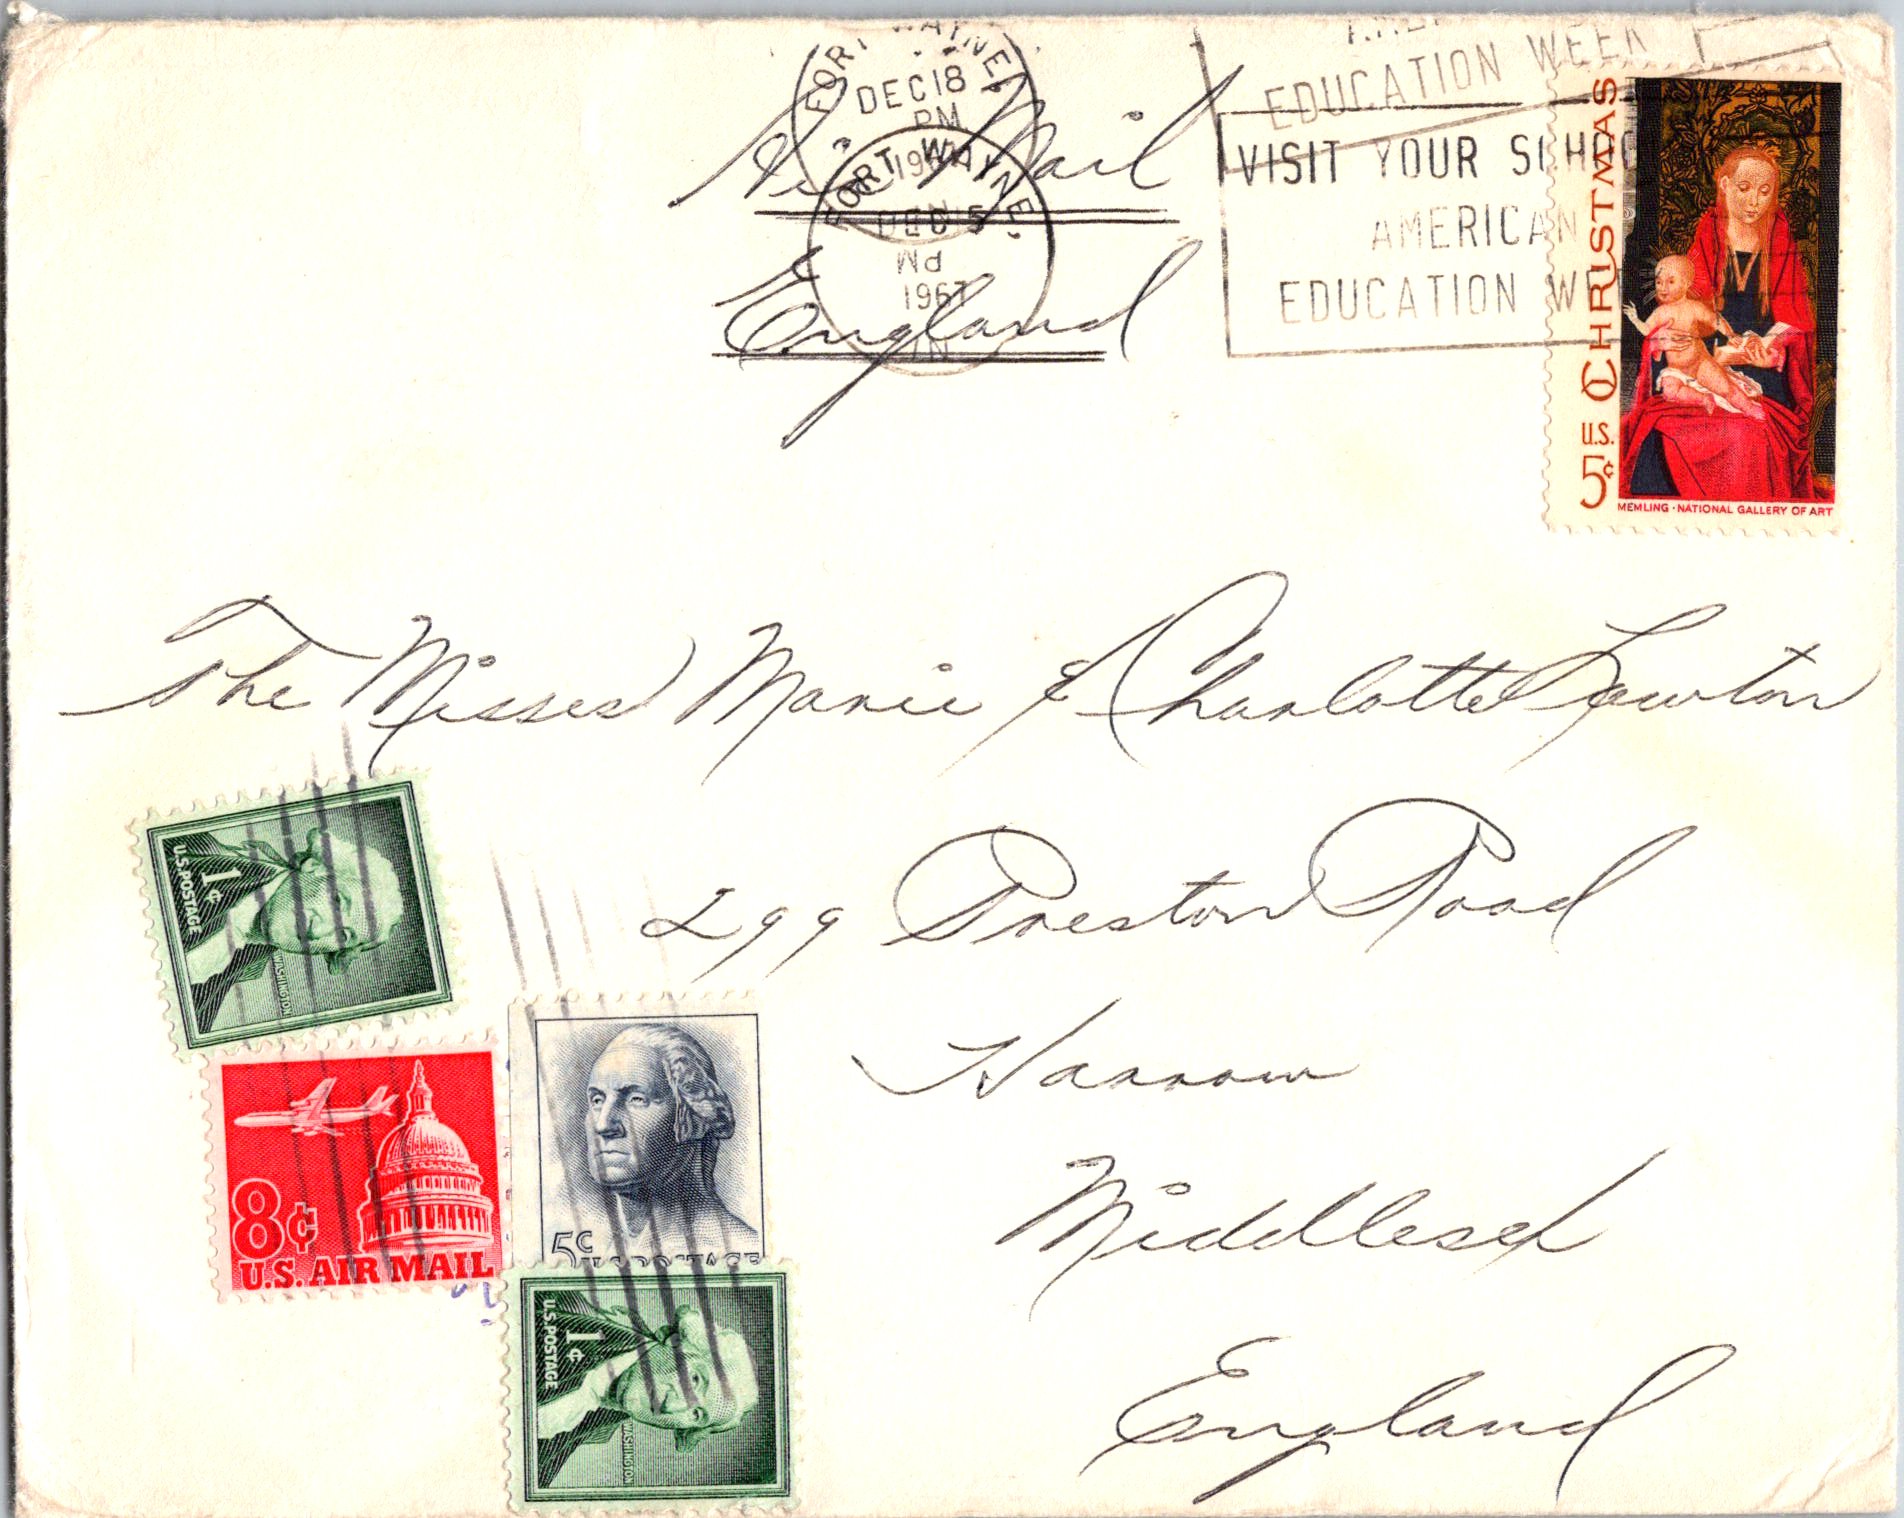 FORT WAYNE,
DEC 18
PM
FORT WAYNE,
DEC 5
PM
1967
IN
Air Mail
England
EDUCATION WEEK
VISIT YOUR SCHOO
AMERICAN
EDUCATION WE
CHRISTMAS
U.S.
5¢
MEMLING · NATIONAL GALLERY OF ART
The Misses Marie & Charlotte Lewton
299 Preston Road
Harrow
Middlesex
England
1¢
U.S. POSTAGE
WASHINGTON
8¢
U.S. AIR MAIL
5¢
U.S. POSTAGE
1¢
U.S. POSTAGE
WASHINGTON